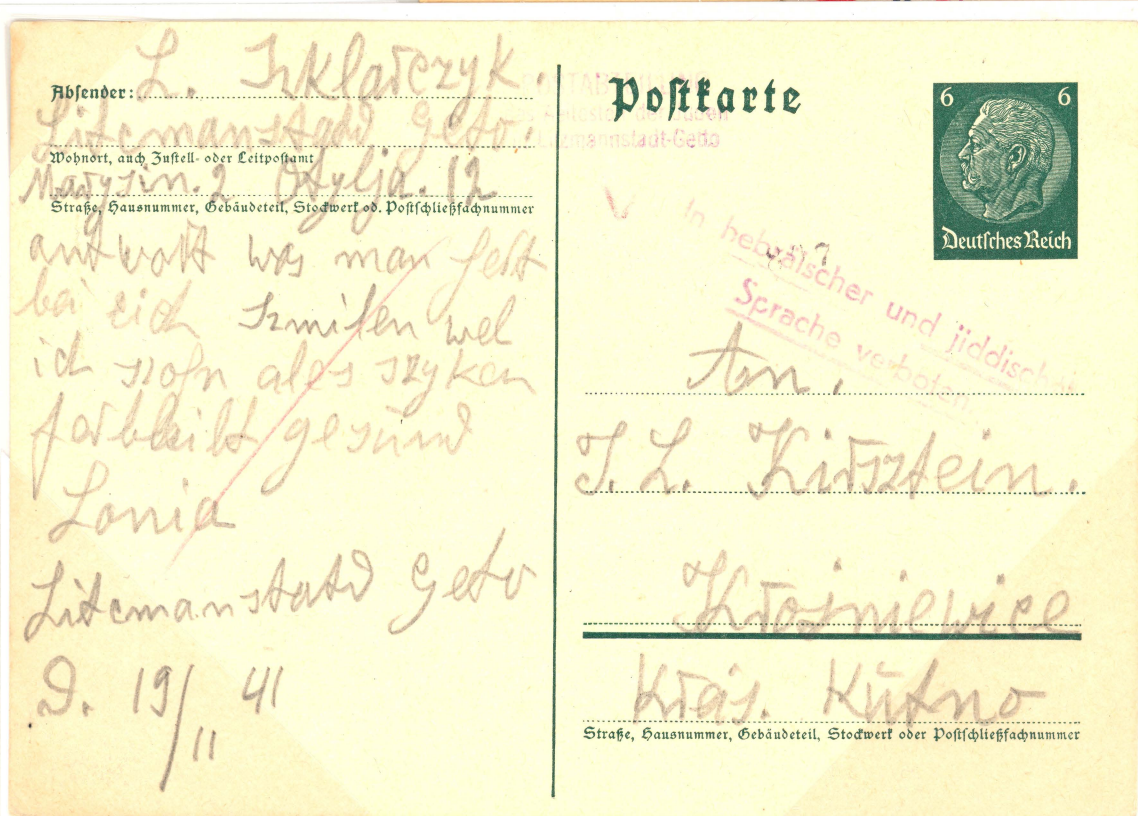 Absender: L. Szklarczyk.
Litcmanstadt Geto.
Wohnort, auch Zustell- oder Leitpostamt
Marysin. 2 Otylja. 12
Straße, Hausnummer, Gebäudeteil, Stockwerk od. Postschließfachnummer
antwort was man
bai eich wel
ich szofn ales szyken
farbleibt gesund
Lonia
Litcmanstatd Geto
D. 19/11 41
Postkarte
der Juden
Litzmannstadt-Getto
6 6
Deutsches Reich
In hebräischer und jiddischer
Sprache verboten
An.
I. L. Kirsztein.
Krośniewice
Kräs. Kutno
Straße, Hausnummer, Gebäudeteil, Stockwerk oder Postschließfachnummer